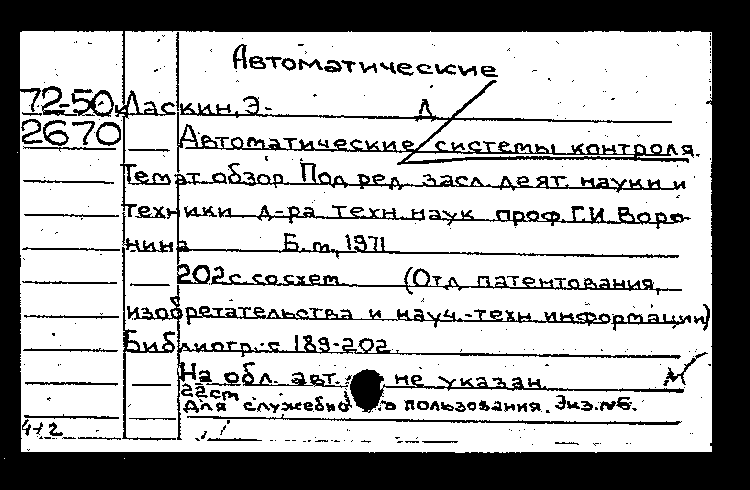 Автоматические
72-50к Ласкин, Э. Д
2670 Автоматические системы контроля.
Темат. обзор. Под ред. засл. деят. науки и
техники д-ра техн. наук проф. Г.И. Воро-
нина Б.м., 1971
202с. со схем. (Отд. патентования,
изобретательства и науч.-техн. информации)
Библиогр.: с. 189-202.
На обл. авт. не указан.
22см
Для служебно о пользования. Экз. №6.
4+2